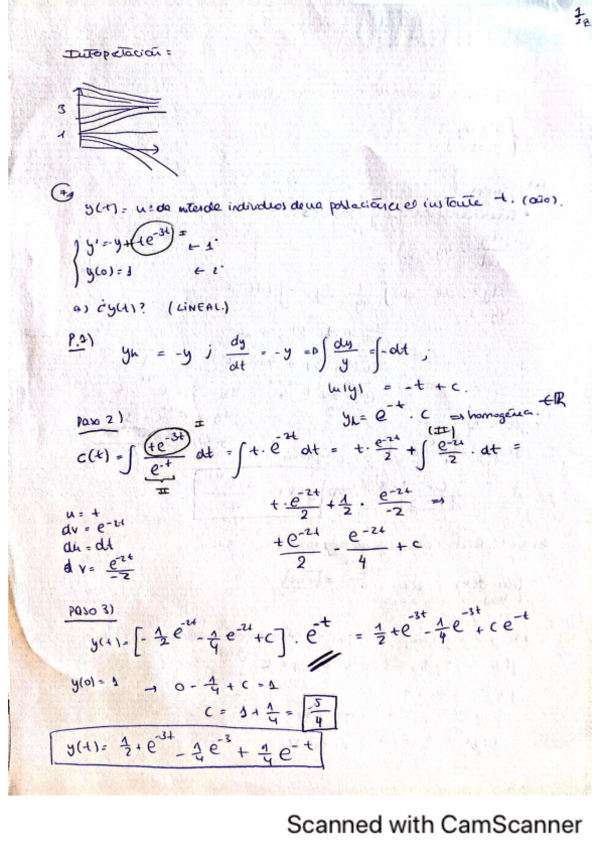 1
Interpretación:
3
1
y(t) = nº de individuos de una población en el instante t. (año).
y' = -y + te^{-3t} I ← 1º
y(0) = 1 ← 2º
a) ¿y(t)? (LINEAL.)
P.1) y_h = -y ; dy/dt = -y ⇒ ∫ dy/y = ∫ -dt ;
ln|y| = -t + c.
y_h = e^{-t} · c ⇒ homogénea. t∈ℝ
Paso 2)
c(t) = ∫ te^{-3t}/e^{-t} dt = ∫ t · e^{-2t} dt = t · e^{-2t}/2 + ∫ e^{-2t}/2 · dt =
I
II
(II)
u = t
dv = e^{-2t}
du = dt
dv = e^{-2t}/-2
t · e^{-2t}/2 + 1/2 · e^{-2t}/-2 ⇒
te^{-2t}/2 - e^{-2t}/4 + c
PASO 3)
y(t) = [-1/2 e^{-2t} - 1/4 e^{-2t} + c] · e^{-t} = 1/2 te^{-3t} - 1/4 e^{-3t} + ce^{-t}
y(0) = 1 → 0 - 1/4 + c = 1
c = 1 + 1/4 = 5/4
y(t) = 1/2 te^{-3t} - 1/4 e^{-3} + 1/4 e^{-t}
Scanned with CamScanner